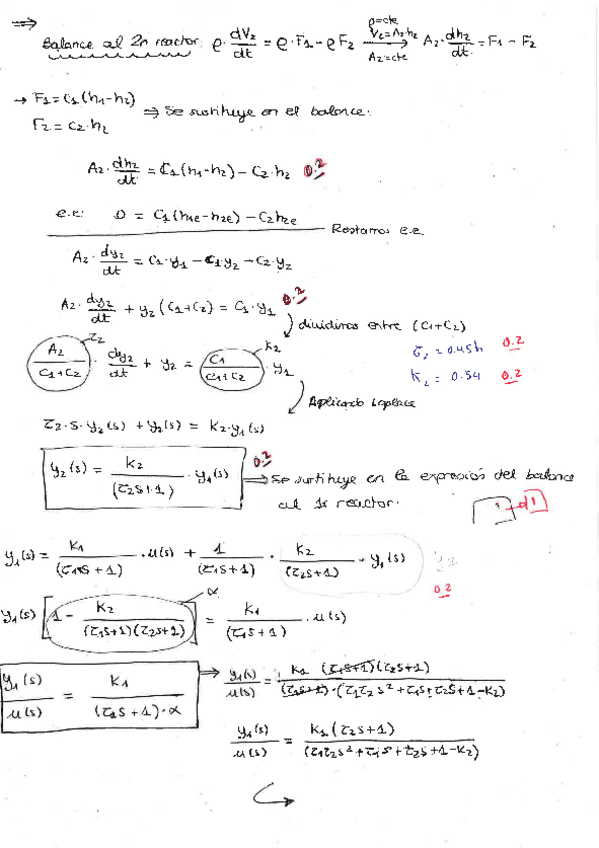 ⇒
Balance al 2º reactor: ρ · dV₂/dt = ρ · F₁ - ρ F₂ → (ρ=cte, V₂=A₂·h₂, A₂=cte) A₂ · dh₂/dt = F₁ - F₂
→ F₁ = C₁ (h₁-h₂)
F₂ = C₂·h₂ ⇒ Se sustituye en el balance:
A₂ · dh₂/dt = C₁ (h₁-h₂) - C₂·h₂ 0.2
e.e: 0 = C₁ (h₁e-h₂e) - C₂h₂e
Restamos e.e.
A₂ · dy₂/dt = C₁·y₁ - C₁y₂ - C₂·y₂
A₂ · dy₂/dt + y₂ (C₁+C₂) = C₁·y₁ 0.2
dividimos entre (C₁+C₂)
A₂/(C₁+C₂) · dy₂/dt + y₂ = C₁/(C₁+C₂) · y₁ τ₂ K₂
τ₂ = 0.45h 0.2
K₂ = 0.54 0.2
Aplicando Laplace
τ₂·s·y₂(s) + y₂(s) = K₂·y₁(s)
y₂(s) = K₂/(τ₂s+1) · y₁(s) 0.2 ⇒ Se sustituye en la expresión del balance
al 1r reactor. 1 → d1
y₁(s) = K₁/(τ₁s+1) · u(s) + 1/(τ₁s+1) · K₂/(τ₂s+1) · y₁(s) y₂
0.2
y₁(s) [1 - K₂/((τ₁s+1)(τ₂s+1))] = K₁/(τ₁s+1) · u(s) α
y₁(s)/u(s) = K₁/((τ₁s+1)·α) ⇒ y₁(s)/u(s) = K₁ (τ₁s+1)(τ₂s+1)/((τ₁s+1)·(τ₁τ₂s²+τ₁s+τ₂s+1-K₂))
y₁(s)/u(s) = K₁(τ₂s+1)/(τ₁τ₂s²+τ₁s+τ₂s+1-K₂)